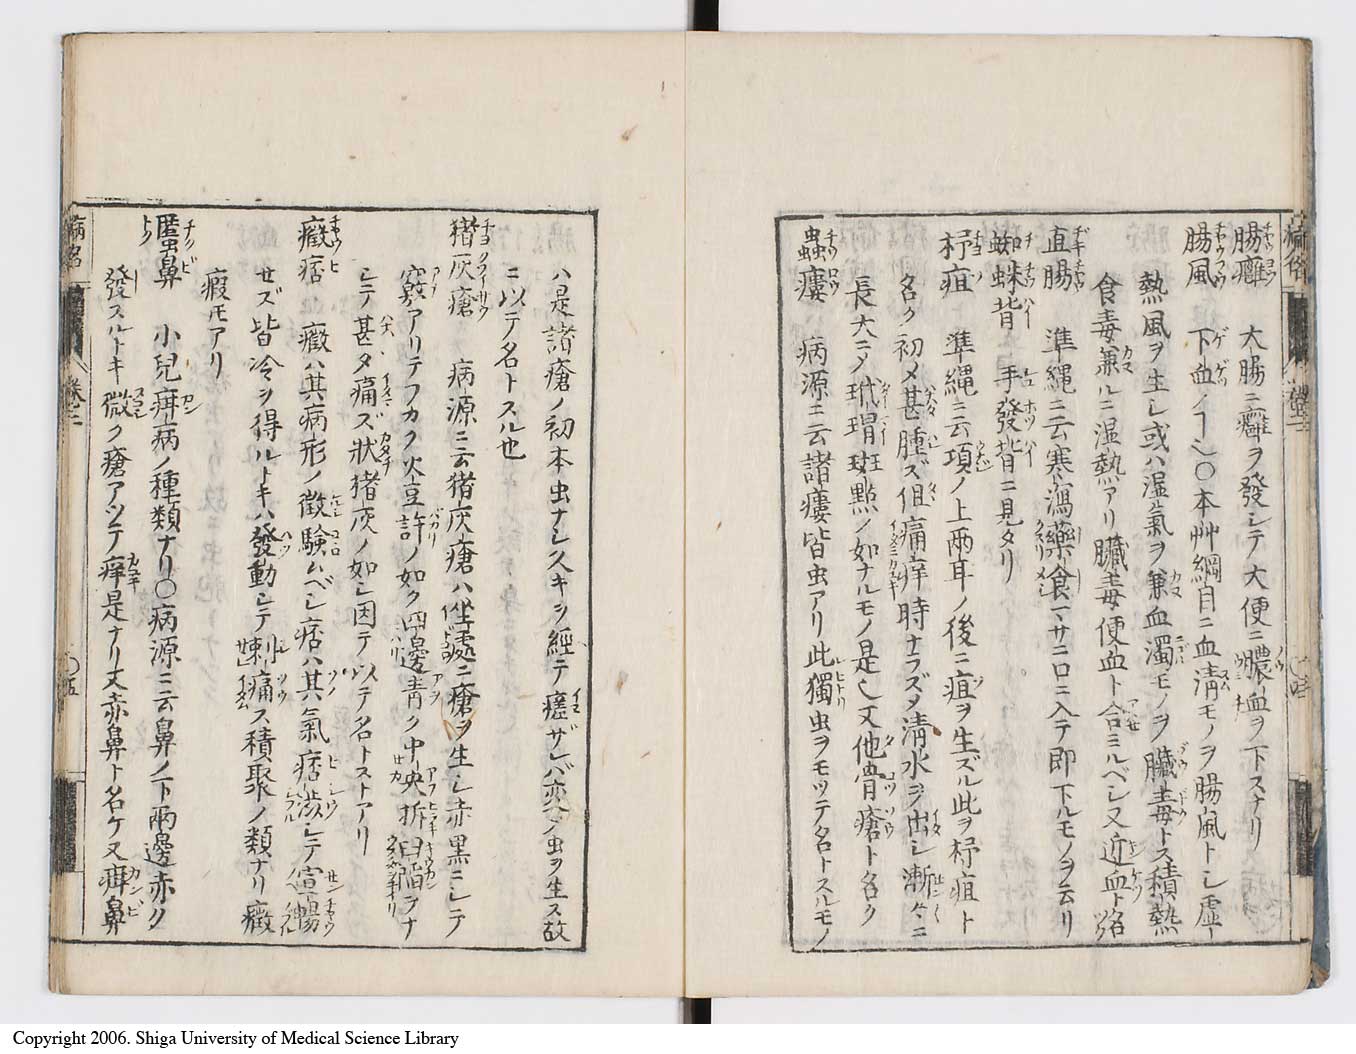 腸癰 大腸ニ癰ヲ發シテ大便ニ膿血ヲ下スナリ
腸風 下血ノ ○本艸綱目ニ血清モノヲ腸風トシ虚
熱風ヲ生シ或ハ湿氣ヲ兼血濁モノヲ臓毒トス積熱
食毒兼ルニ湿熱アリ臓毒便血ト合ミルベシ又近血ト名
直腸 準縄ニ云寒瀉藥食 サニロニ入テ即下ルモノヲ云リ
蜘蛛背 手發背ニ見タリ
杼疽 準縄ニ云項ノ上兩耳ノ後ニ疽ヲ生ズル此ヲ杼疽ト
名ク初メ甚腫ズ但痛痒時ナラズ 清水ヲ出シ漸々ニ
長大ニ 玳瑁斑點ノ如ナルモノ是 又他骨瘡ト名ク
蟲瘻 病源ニ云諸瘻皆虫アリ此獨虫ヲモツテ名トスルモノ
ハ是諸瘡ノ初本虫ナシ久キヲ經テ瘥ザレバ変 虫ヲ生ス故
ニ以テ名トスル也
猪灰瘡 病源ニ云猪灰瘡ハ坐處ニ瘡ヲ生シ赤黒ニシテ
竅アリテフカク大豆許ノ如ク四邊青ク中央拆 陷ヲナ
シテ甚タ痛ズ狀猪灰ノ如シ因テ以テ名トストアリ
癥痞 癥ハ其病形ノ徴驗ムベシ痞ハ其氣痞澁シテ宣暢
セズ皆冷ヲ得ルトキハ發動シテ刺痛ス積聚ノ類ナリ癥
瘕モアリ
䘌鼻 小兒疳病ノ種類ナリ○病源ニ云鼻ノ下兩邊赤ク
發スルトキ微ク瘡アツテ痒是ナリ又赤鼻ト名ケ又疳鼻
ト
病名
卷之二